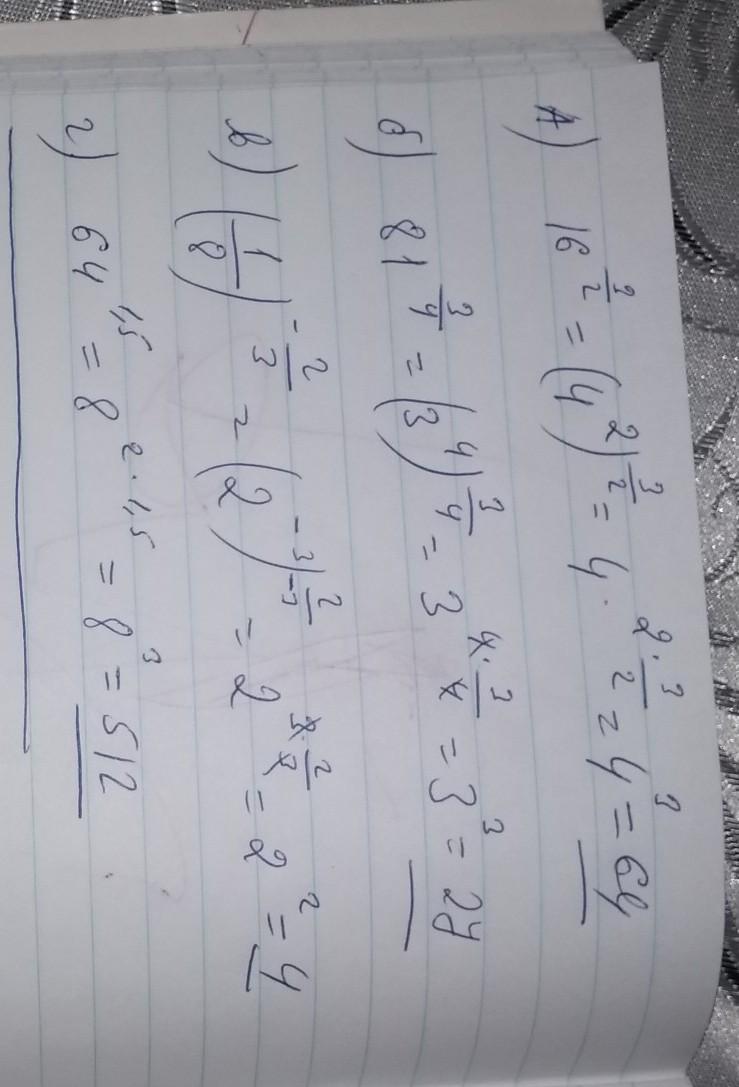 А) 16^{3/2} = (4^2)^{3/2} = 4^{2·3/2} = 4^3 = 64
б) 81^{3/4} = (3^4)^{3/4} = 3^{4·3/4} = 3^3 = 27
в) (1/8)^{-2/3} = (2^{-3})^{2/-3} = 2^{3·2/3} = 2^2 = 4
г) 64^{1,5} = 8^{2·1,5} = 8^3 = 512